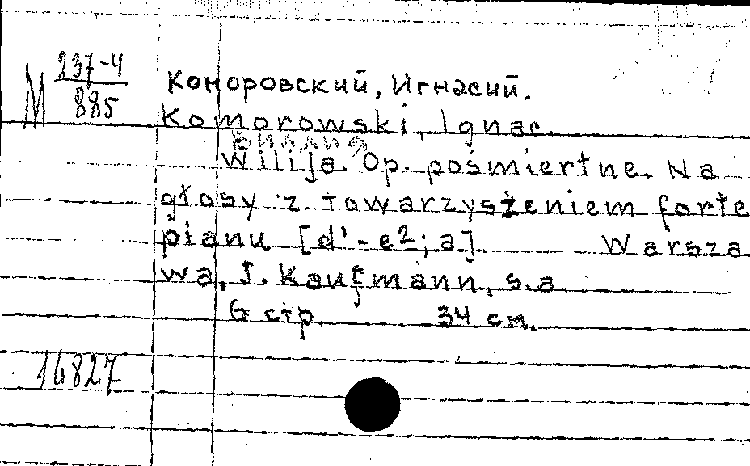 М 237-4
885
Коморовский, Игнасий.
Komorowski, Ignac.
Wilija. Op. pośmiertne. Na
głosy z towarzyszeniem forte
pianu [d'-e2; a]. Warsza
wa, J. Kaufmann, s.a
6 стр. 34 см.
16827